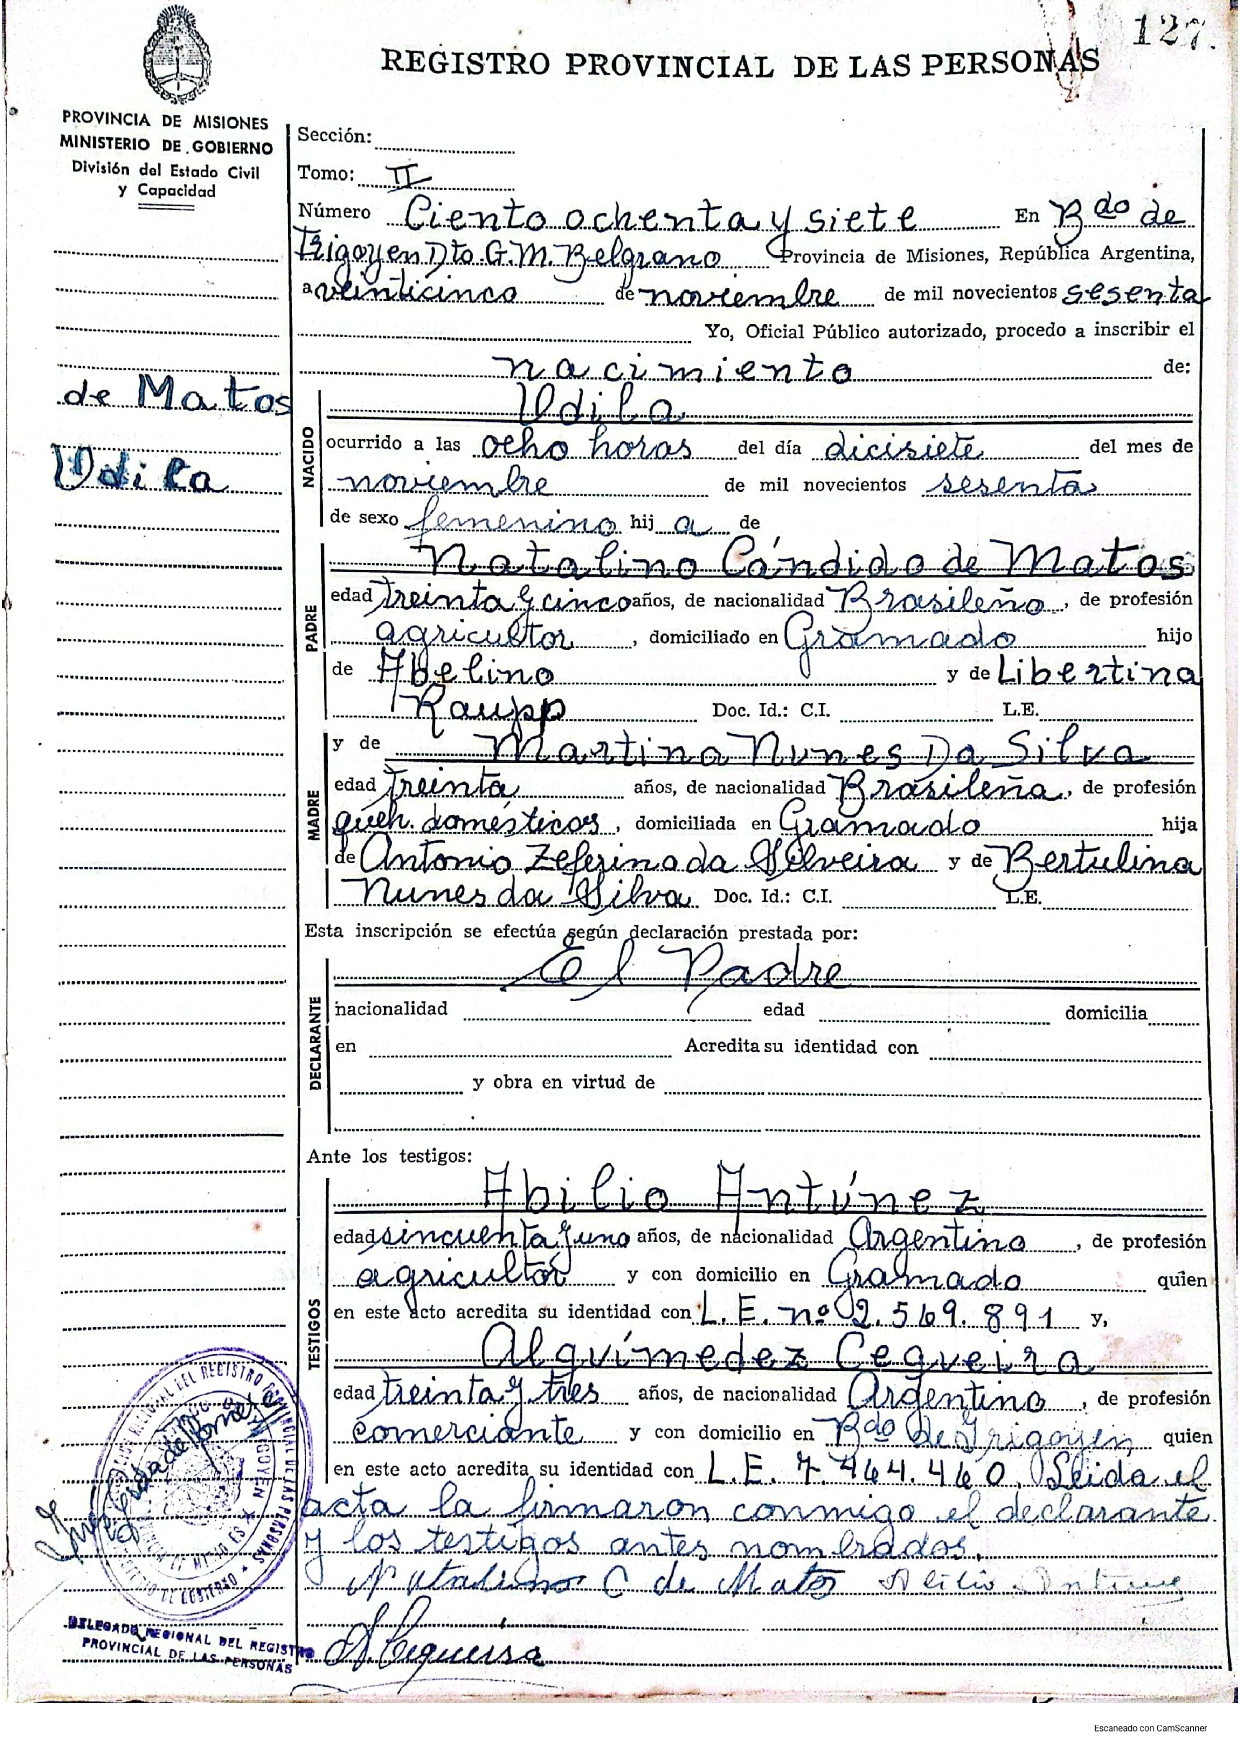 127.
REGISTRO PROVINCIAL DE LAS PERSONAS
PROVINCIA DE MISIONES
MINISTERIO DE GOBIERNO
División del Estado Civil
y Capacidad
Sección:
Tomo: II
Número Ciento ochenta y siete En Bdo de
Irigoyen Dto G.M. Belgrano Provincia de Misiones, República Argentina,
a veinticinco de noviembre de mil novecientos sesenta
Yo, Oficial Público autorizado, procedo a inscribir el
nacimiento de:
de Matos
Udila
NACIDO
Udila
ocurrido a las ocho horas del día dicisiete del mes de
noviembre de mil novecientos sesenta
de sexo femenino hij a de
PADRE
Natalino Cándido de Matos
edad treinta y cinco años, de nacionalidad Brasileño, de profesión
agricultor, domiciliado en Gramado hijo
de Abelino y de Libertina
Raupp Doc. Id.: C.I. L.E.
MADRE
y de Martina Nunes Da Silva
edad treinta años, de nacionalidad Brasileña, de profesión
queh. domésticos, domiciliada en Gramado hija
de Antonio Zeferino da Silveira y de Bertulina
Nunes da Silva Doc. Id.: C.I. L.E.
Esta inscripción se efectúa según declaración prestada por:
DECLARANTE
El Padre
nacionalidad edad domicilia
en Acredita su identidad con
y obra en virtud de
Ante los testigos:
TESTIGOS
Abilio Antúnez
edad sincuenta y uno años, de nacionalidad Argentino, de profesión
agricultor y con domicilio en Gramado quien
en este acto acredita su identidad con L.E. nº 2.569.891 y,
Alquímedez Cequeira
edad treinta y tres años, de nacionalidad Argentino, de profesión
comerciante y con domicilio en Bdo de Irigoyen quien
en este acto acredita su identidad con L.E. 7.464.460. Leida el
acta la firmaron conmigo el declarante
y los testigos antes nombrados.
Natalino C de Matos Abilio Antunez
A. Cequeira
DELEGADO REGIONAL DEL REGISTRO
PROVINCIAL DE LAS PERSONAS
Escaneado con CamScanner